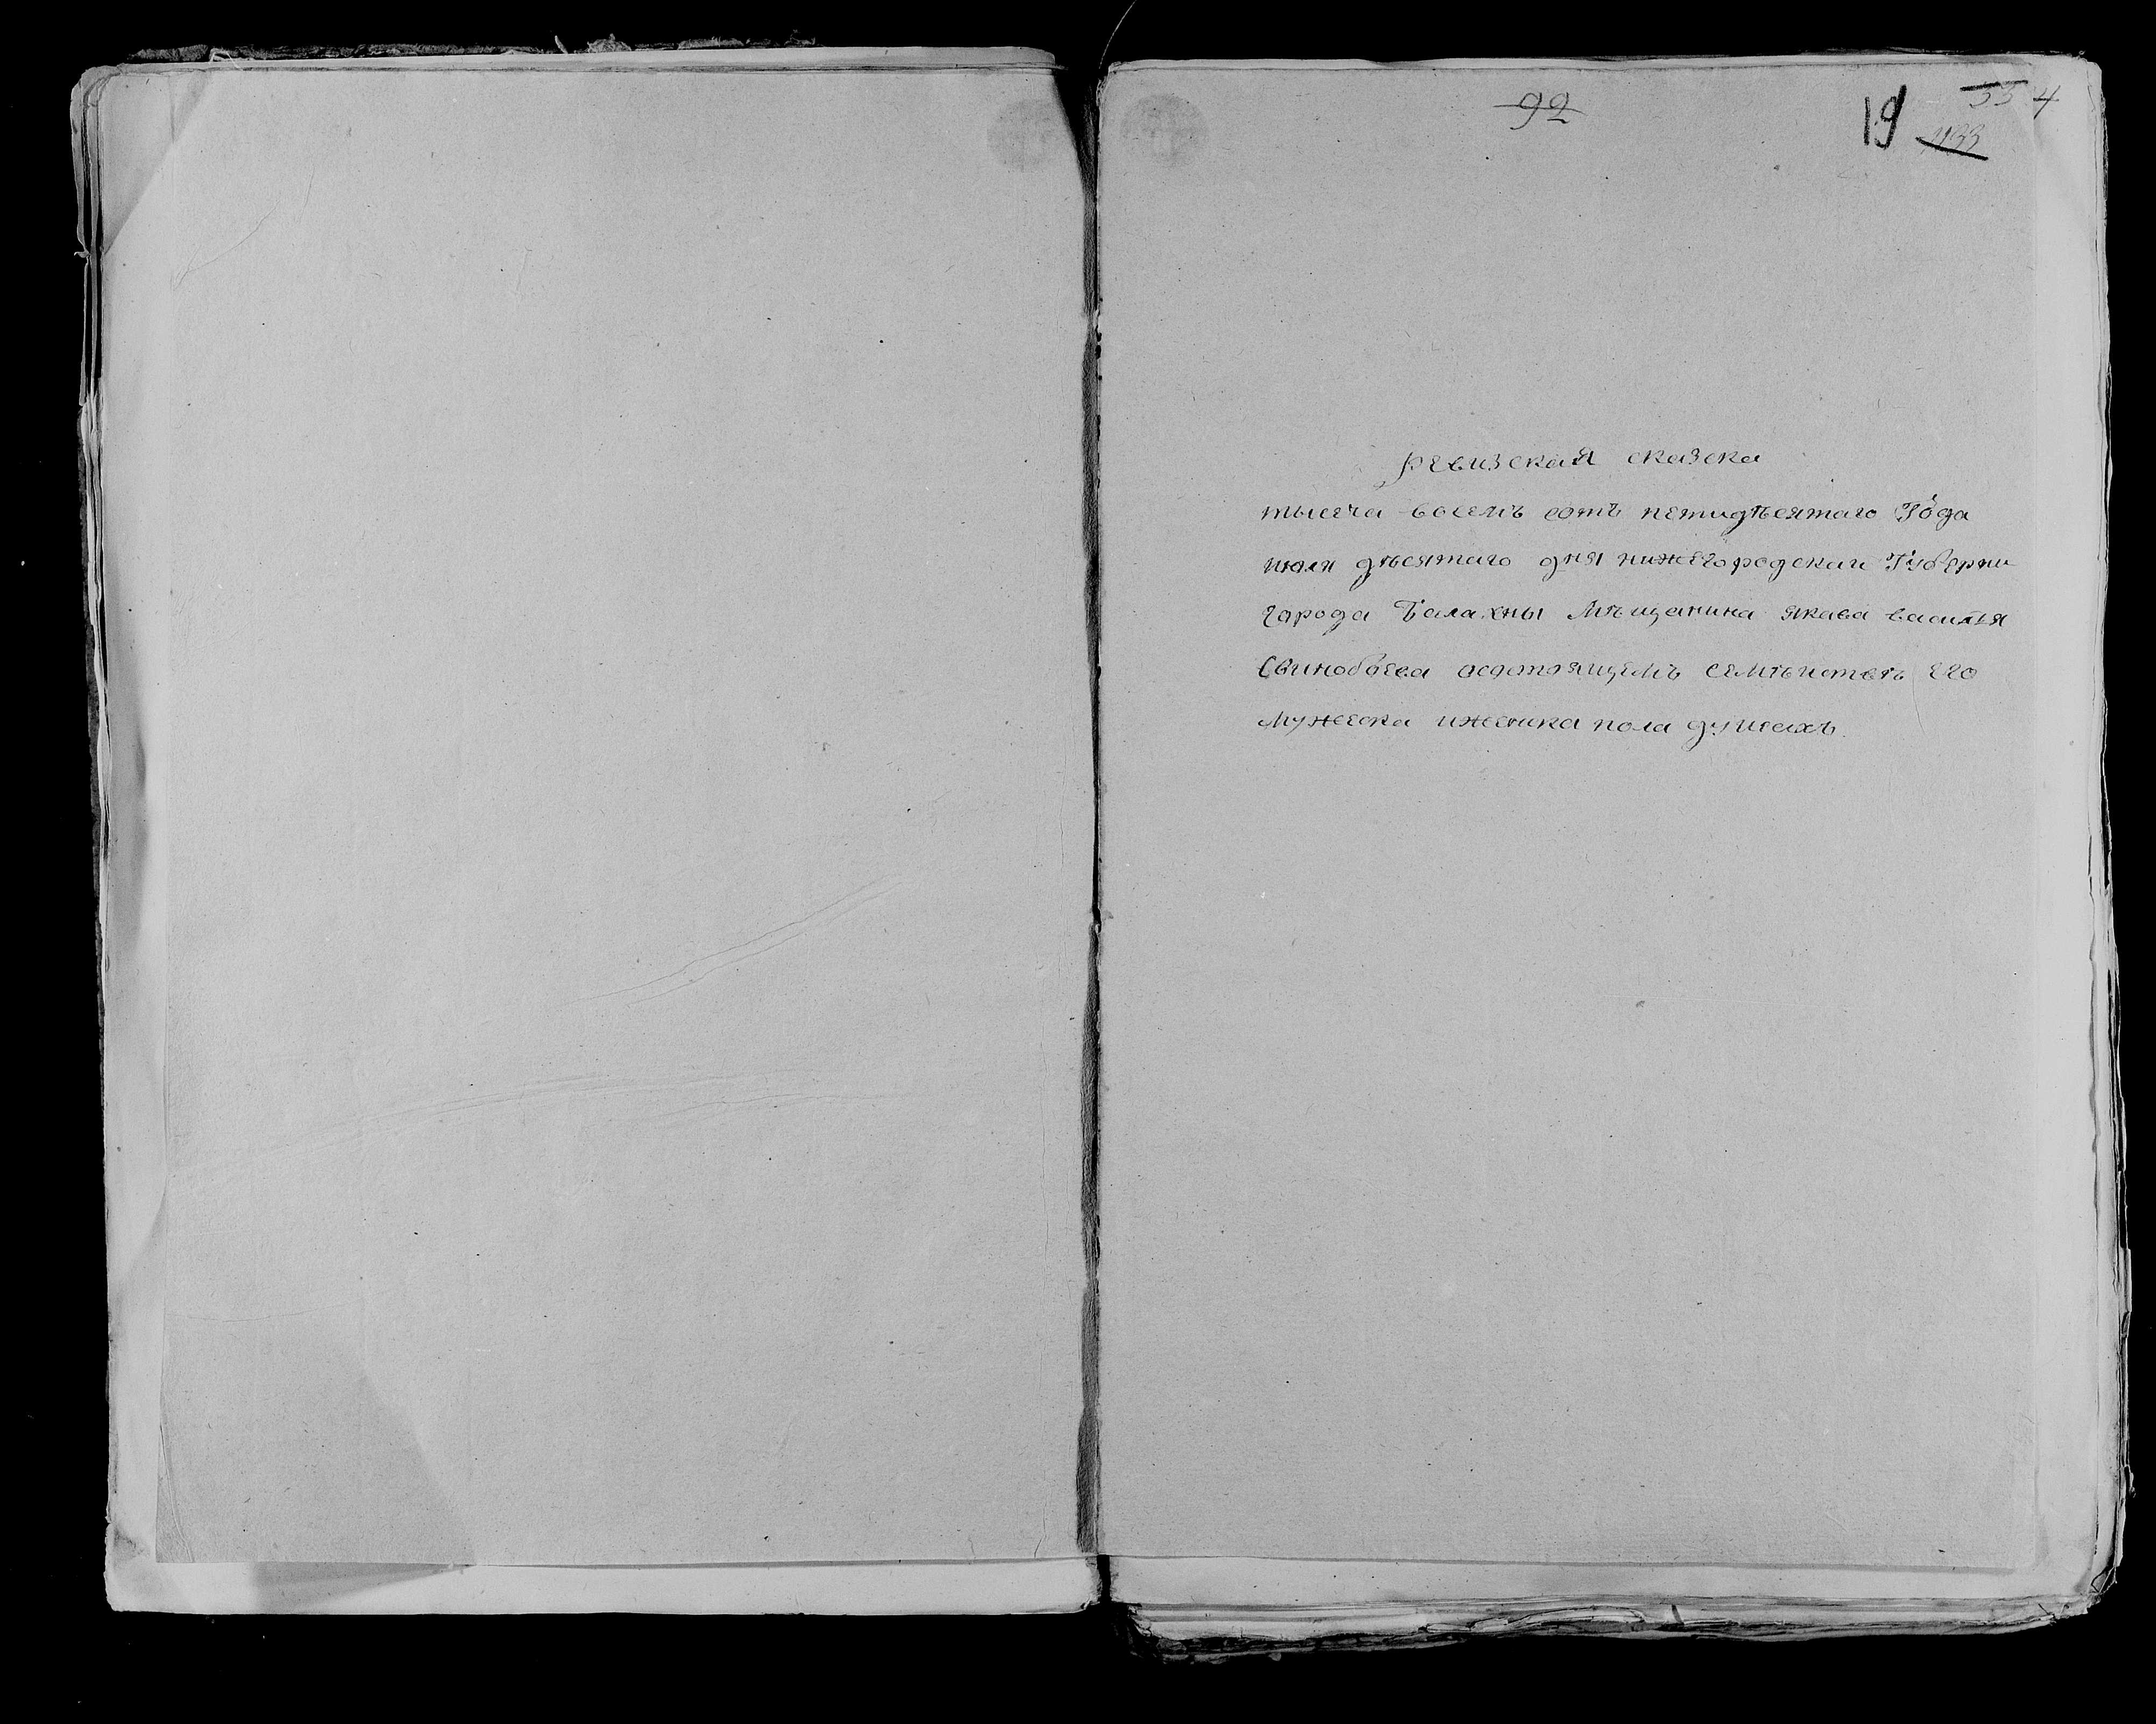 92
19 4
133
ревизская сказска
тысеча восемъ сотъ петидѣсятаго Года
июля дѣсятаго дня нижегородскаи Губерни
города Балахны Мѣщанина якава василья
Свинобоева осостоящемъ семѣистве его
мужеска иженска пола душехъ.